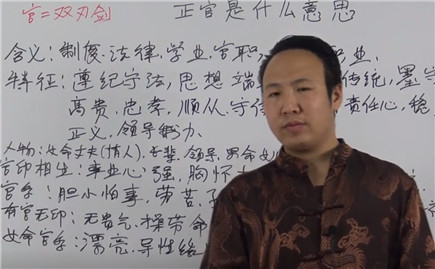 官=双刃剑 正官是什么意思
含义:制度、法律、学业、官职 业、
特征:遵纪守法,思想端 传统,墨守
高贵,忠孝,顺从,守信 责任心,稳
正义,领导能力。
人物:女命丈夫(情人),长辈,领导,男命女
官印相生:事业心强,胸怀大
官多:胆小怕事,劳苦
有官无印:无贵气,操劳命
女命官多:漂亮,异性缘